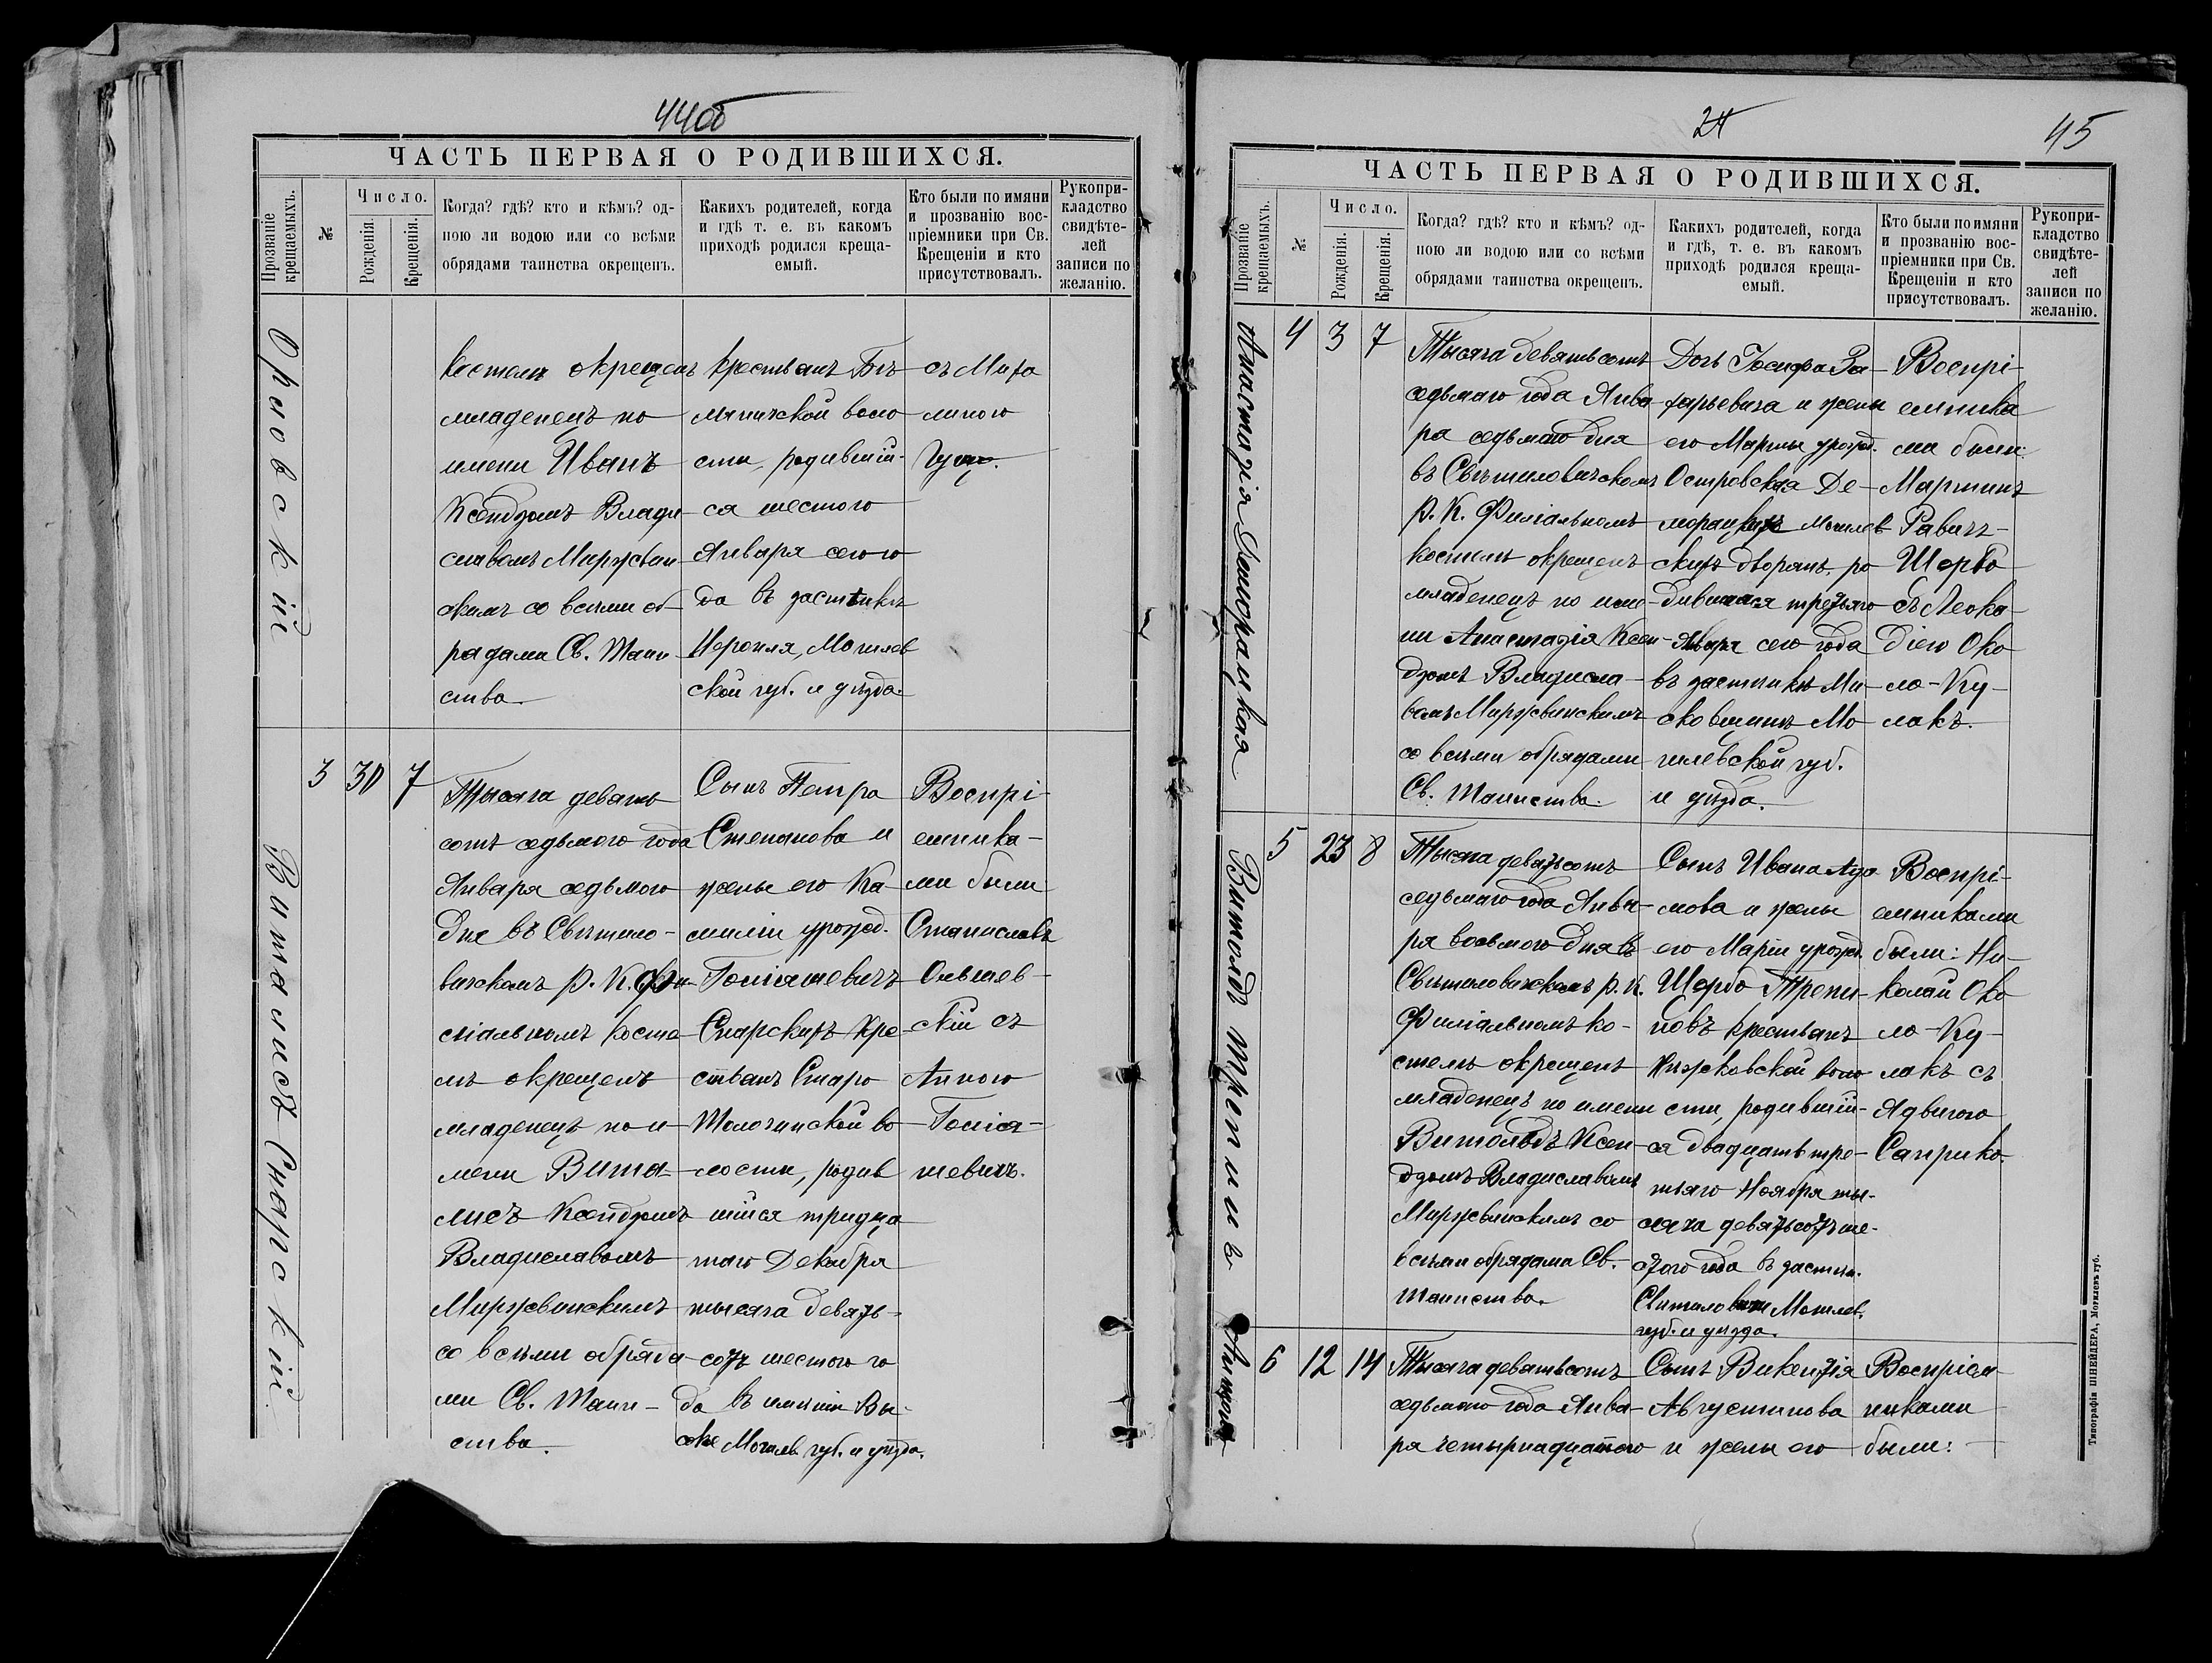 44об
ЧАСТЬ ПЕРВАЯ О РОДИВШИХСЯ.
Прозваніе крещаемыхъ.
№
Число.
Рожденія.
Крещенія.
Когда? гдѣ? кто и кѣмъ? од-
ною ли водою или со всѣми
обрядами таинства окрещенъ.
Какихъ родителей, когда
и гдѣ т. е. въ какомъ
приходѣ родился креща-
емый.
Кто были по имяни
и прозванію вос-
пріемники при Св.
Крещеніи и кто
присутствовалъ.
Рукопри-
кладство
свидѣте-
лей
записи по
желанію.
Орловскій
костелѣ окрещенъ
младенецъ по
имени Иванъ
Ксендзомъ Влади-
славомъ Миржвин-
скимъ со всѣми об-
рядами Св. Таин-
ства.
крестьянъ
волο-
сти, родившій-
ся шестого
Января сего го-
да въ застѣнкѣ
Могилев-
ской губ. и уѣзда.
съ Миха-
линою
Виталисъ Снарскій
3 30 7
Тысяча девять-
сотъ седьмого года
Января седьмого
дня въ Свѣтило-
вичскомъ р. К. Фи-
ліальномъ косте-
лѣ окрещенъ
младенецъ по и-
мени Вита-
лисъ Ксендзомъ
Владиславомъ
Миржвинскимъ
со всѣми обряда-
ми Св. Таин-
ства.
Сынъ Петра
Степанова и
жены его Ка-
миліи урожд.
Госіяшевичъ
Снарскихъ кре-
стьянъ Старо-
Толочинской во-
лости, родив-
шійся тридца-
таго Декабря
тысяча девять-
сотъ шестого го-
да въ имѣніи Вы-
сокое Могилев. губ. и уѣзда.
Воспрі-
емника-
ми были:
Станиславъ
Ольшев-
скій съ
Анною
Госія-
шевичъ.
24
45
ЧАСТЬ ПЕРВАЯ О РОДИВШИХСЯ.
Прозваніе крещаемыхъ.
№
Число.
Рожденія.
Крещенія.
Когда? гдѣ? кто и кѣмъ? од-
ною ли водою или со всѣми
обрядами таинства окрещенъ.
Какихъ родителей, когда
и гдѣ, т. е. въ какомъ
приходѣ родился креща-
емый.
Кто были по имяни
и прозванію вос-
пріемники при Св.
Крещеніи и кто
присутствовалъ.
Рукопри-
кладство
свидѣте-
лей
записи по
желанію.
Анастазія Деморацкая
4 3 7
Тысяча девятьсотъ
седьмаго года Янва-
ра седьмаго дня
въ Свѣтиловичскомъ
р. К. Филіальномъ
костелѣ окрещенъ
младенецъ по име-
ни Анастазія Ксен-
дзомъ Владисла-
вомъ Миржвинскимъ
со всѣми обрядами
Св. Таинства.
Дочь Іосифа За-
харьевича и жены
его Марты урожд.
Островская Де-
морацкихъ Могилев-
скихъ дворянъ, ро-
дившаяся третьяго
Января сего года
въ застѣнкѣ Ми-
сковщинѣ Мо-
гилевской губ.
и уѣзда.
Воспрі-
емника-
ми были:
Мартинъ
Равичъ-
Щорбо
съ Леока-
діею Око-
ло-Ку-
лакъ.
Витольдъ Трепинъ
5 23 8
Тысяча девятьсотъ
седьмаго года Янва-
ря восьмого дня въ
Свѣтиловичскомъ р. К.
Филіальномъ ко-
стелѣ окрещенъ
младенецъ по имени
Витольдъ Ксен-
дзомъ Владиславомъ
Миржвинскимъ со
всѣми обрядами Св.
Таинства.
Сынъ Ивана Ада-
мова и жены
его Маріи урожд.
Щорбо Трепи-
новъ крестьянъ
Княжковской воло-
сти, родившій-
ся двадцать тре-
тьяго Ноября ты-
сяча девятьсотъ ше-
стого года въ застѣн.
Свѣтиловичи Могилев.
губ. и уѣзда.
Воспрі-
емниками
были: Ни-
колай Око-
ло-Ку-
лакъ съ
Ядвигою
Саприко.
6 12 14
Тысяча девятьсотъ
седьмого года Янва-
ря четырнадцатого
Сынъ Викентія
Августинова
и жены его
Воспріем-
никами
были:
Типографія ШНЕЙДЕРА, Могилевъ губ.